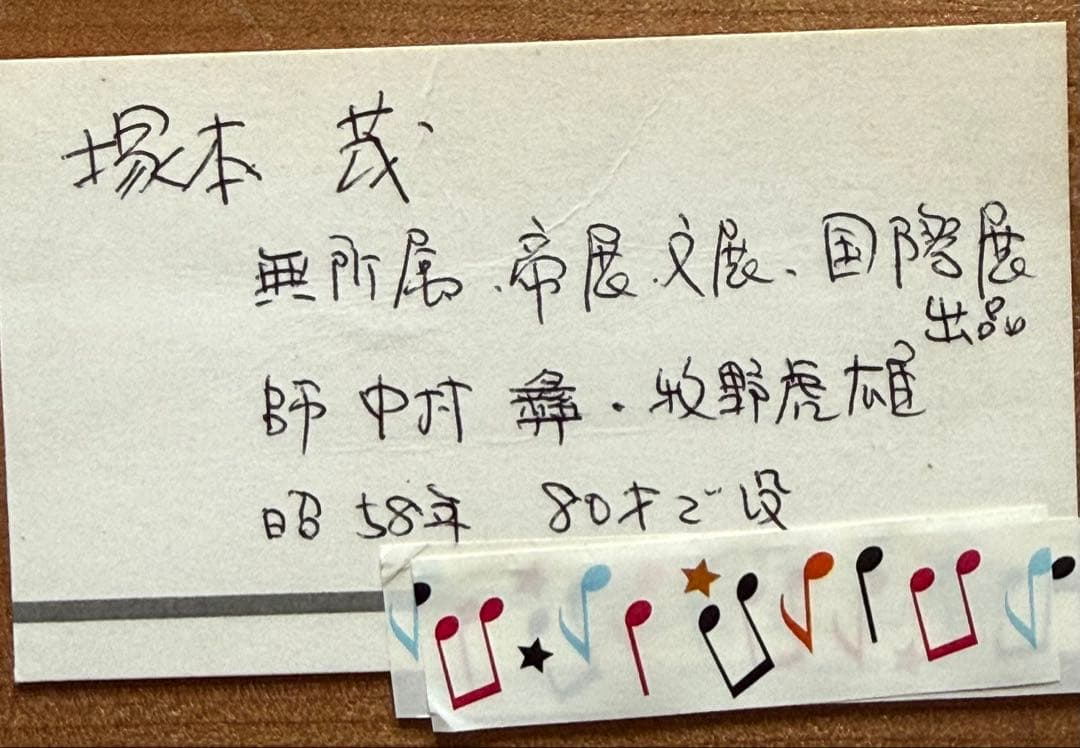 塚本 茂
無所属.帝展.文展、国際展
出品
師 中村 彝.牧野虎雄
昭 58年 80才で没